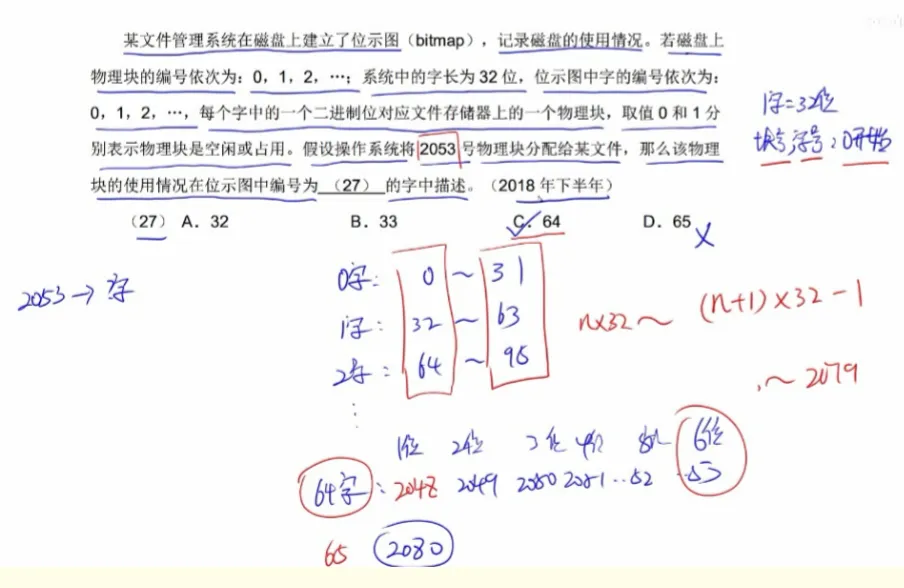 某文件管理系统在磁盘上建立了位示图（bitmap），记录磁盘的使用情况。若磁盘上
物理块的编号依次为：0，1，2，…；系统中的字长为 32 位，位示图中字的编号依次为：
0，1，2，…，每个字中的一个二进制位对应文件存储器上的一个物理块，取值 0 和 1 分
别表示物理块是空闲或占用。假设操作系统将 2053 号物理块分配给某文件，那么该物理
块的使用情况在位示图中编号为 （27） 的字中描述。（2018 年下半年）
1字=32位
块号,字号：0开始
（27）A．32 B．33 C．64 D．65
2053→字
0字： 0 ～ 31
1字： 32 ～ 63
n×32～ (n+1)×32-1
2字： 64 ～ 95
～2079
⋮
1位 2位 3位 4位 6位
64字：2048 2049 2050 2051 ..52 ..53
65 2080